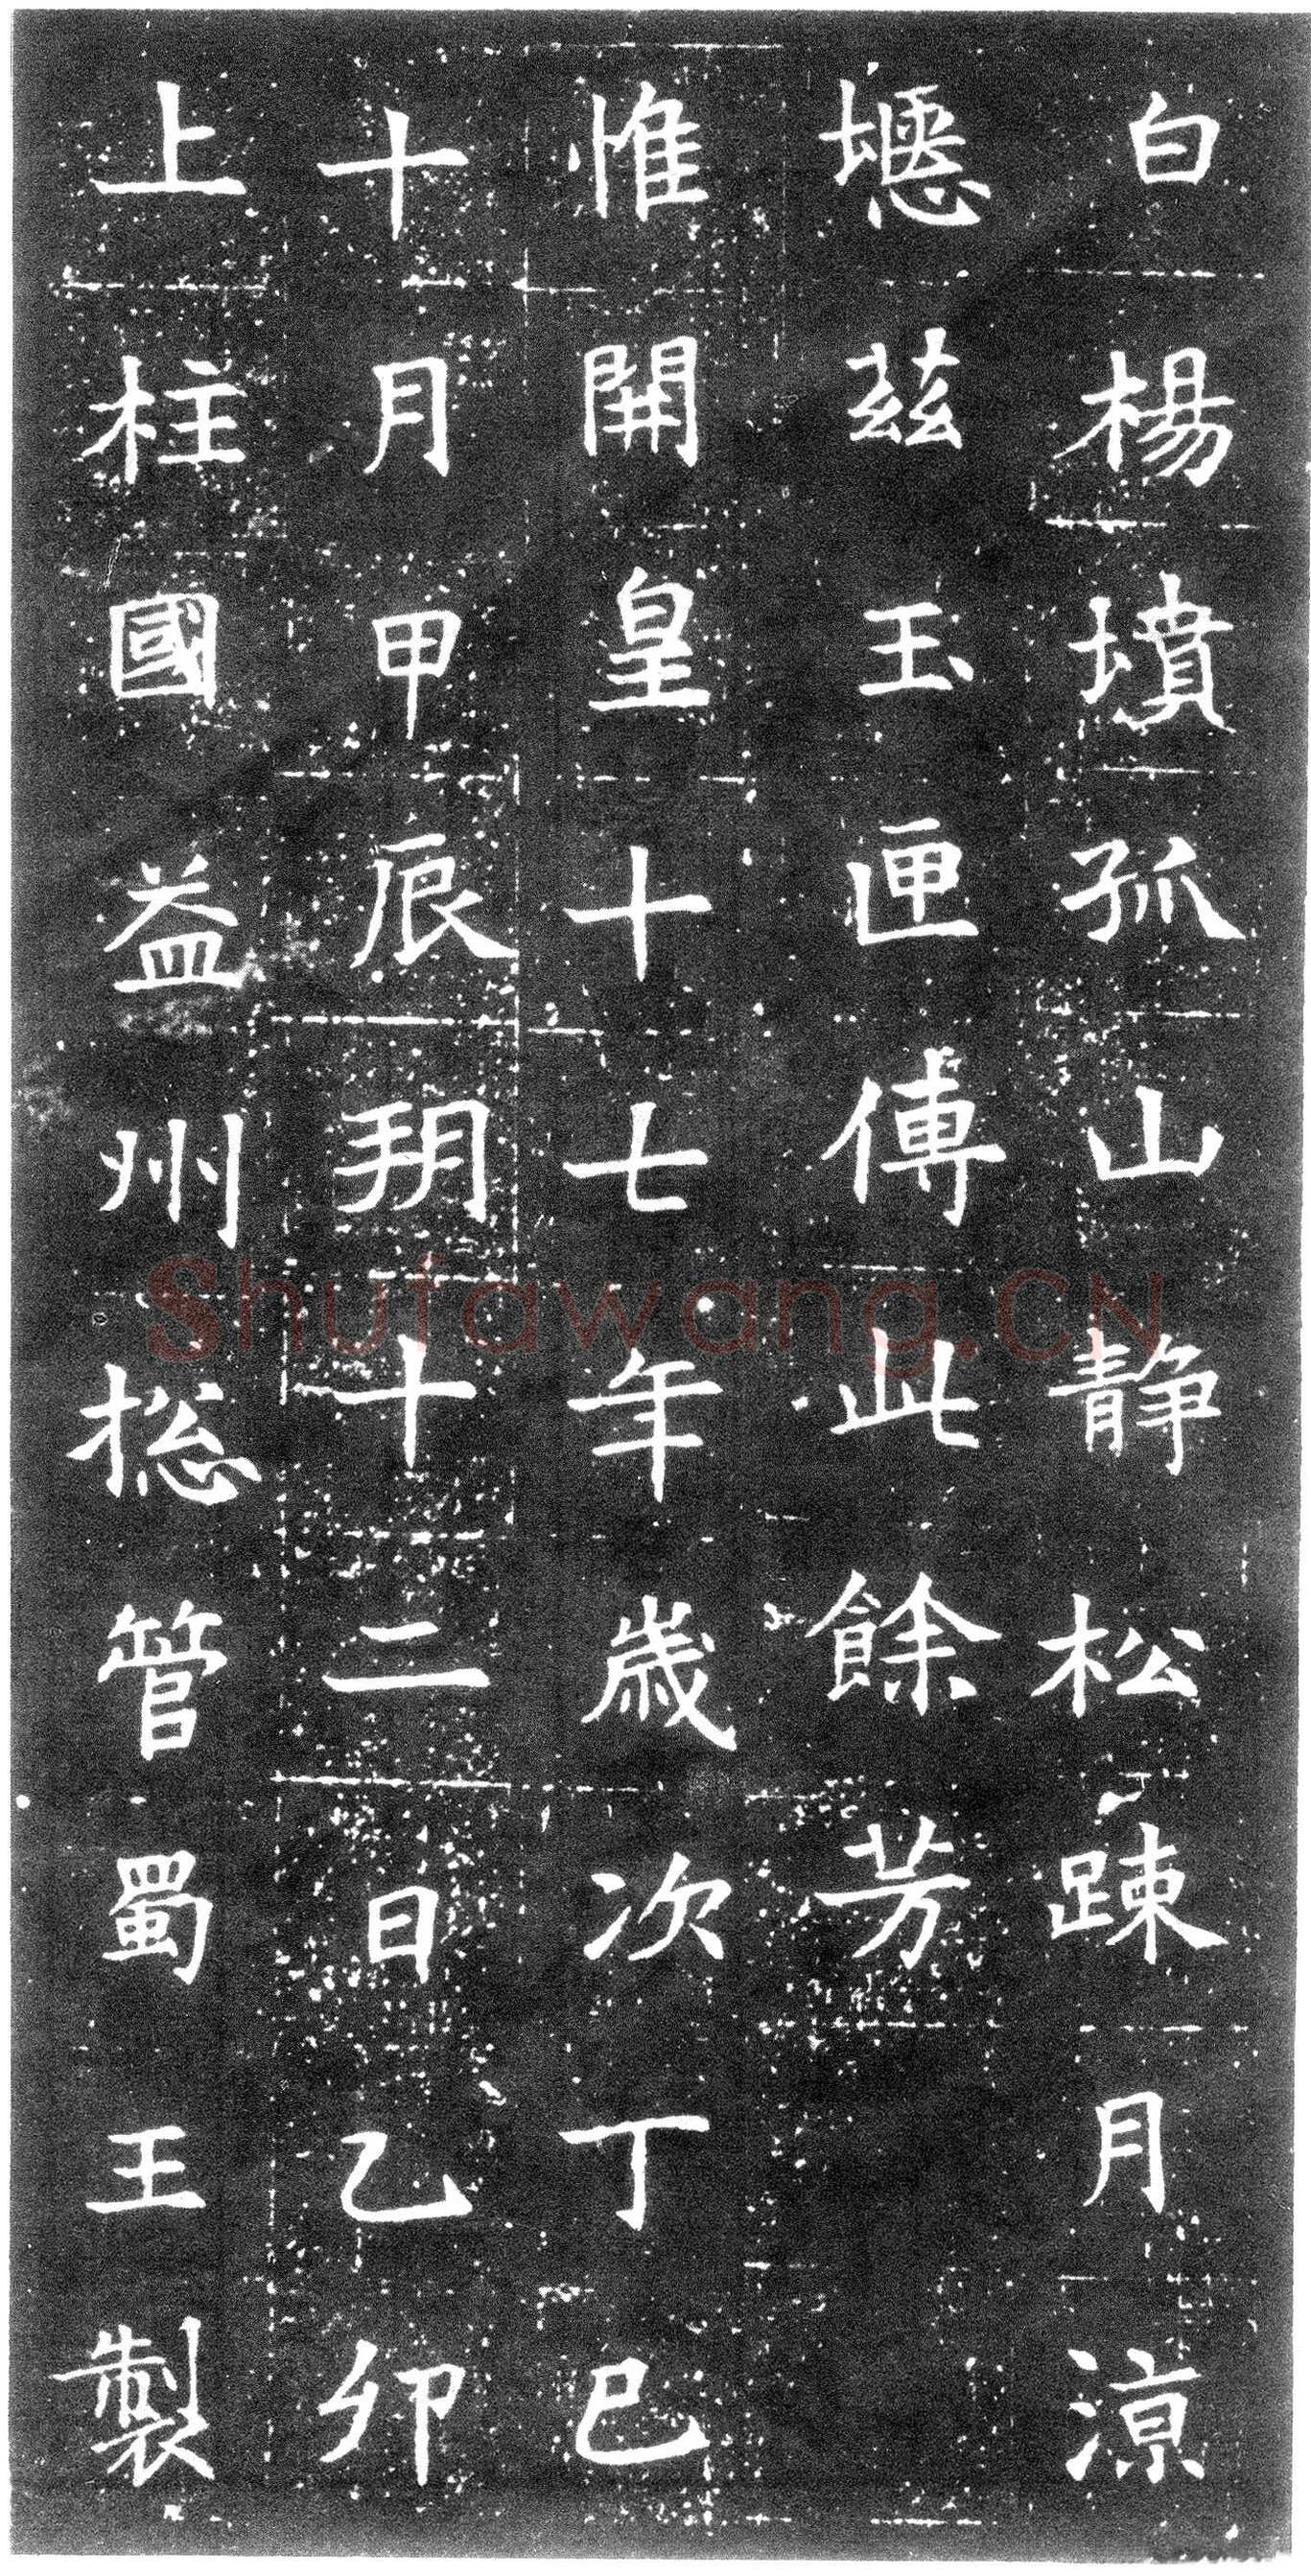 白楊墳孤山静松踈月涼
墲兹玉匣傅此餘芳
惟開皇十七年歲次丁巳
十月甲辰朔十二日乙卯
上柱國益州揔管蜀王製
Shufawang.CN